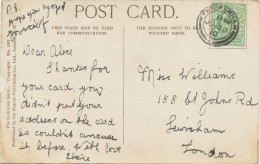 P.S.
Hope you enjoyed
yourself
POST CARD.
THIS SPACE MAY BE USED
FOR COMMUNICATION.
THE ADDRESS ONLY TO BE
WRITTEN HERE.
Dear
Thanks for
your card you
didn't put your
address on the card
so couldn't answer
it before With love
Elsie
Miss Williams
158 St Johns Rd
Lewisham
London